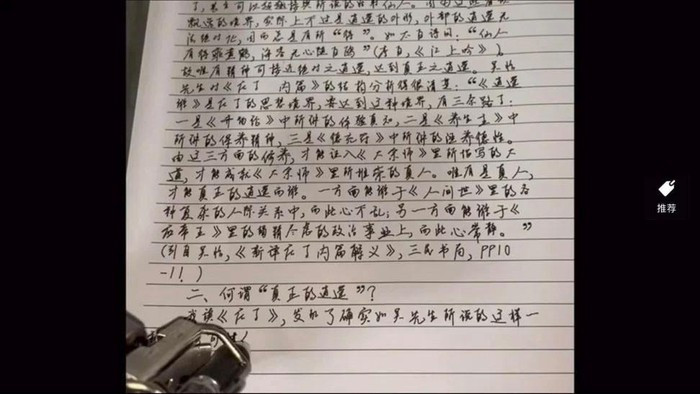 飘逸的境界，实际上不过是逍遥的外形，外部的逍遥无
法绝对化，因而总是有所“待”。如太白诗曰：“仙人
有待乘黄鹤，海客无心随白鸥”（李白，《江上吟》）。
故唯有精神可接近绝对之逍遥，达到真正之逍遥。吴怡
先生对《庄子 内篇》的结构分析得很清楚：“《逍遥
游》是庄子的思想境界，要达到这种境界，有三条路子：
一是《齐物论》中所讲的体验真知，二是《养生主》中
所讲的保养精神，三是《德充符》中所讲的涵养德性。
由这三方面的修养，才能证入《大宗师》里所描写的大
道，才能成就《大宗师》里所推崇的真人。唯有是真人，
才能真正的逍遥而游。一方面能游于《人间世》里的各
种复杂的人际关系中，而此心不乱；另一方面能游于《
应帝王》里的的政治事业上，而此心常静。”
（引自吴怡，《新译庄子内篇解义》，三民书局，PP10
-11）
二、何谓“真正的逍遥”？
我读《庄子》，发现了确实如吴先生所说的这样一
推荐